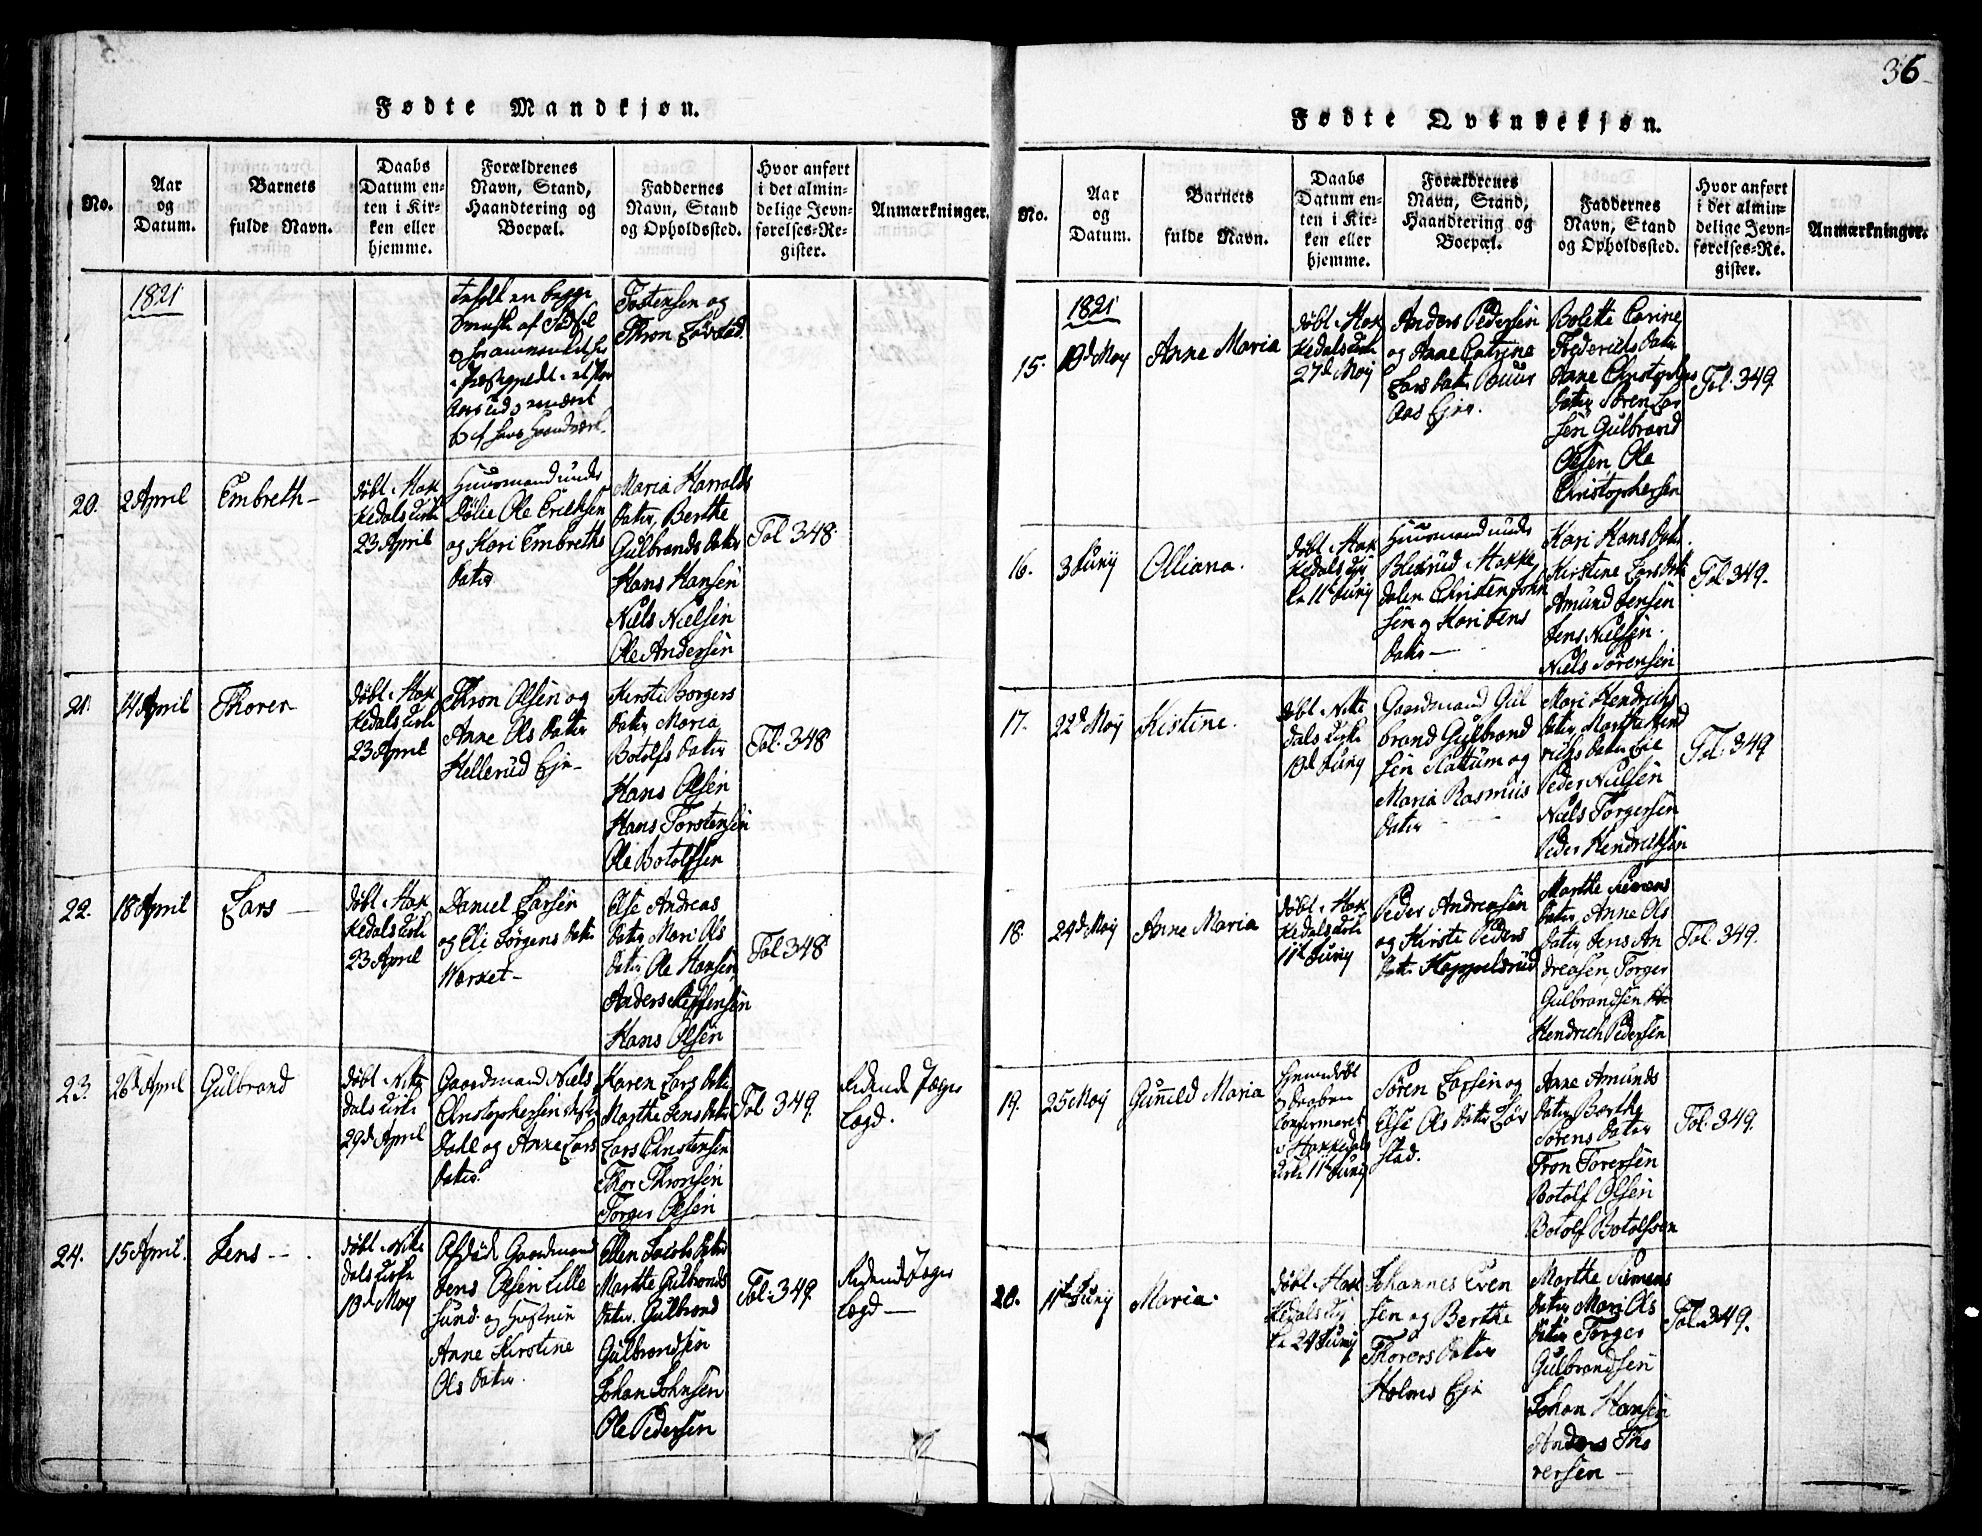 36
Fødte Mandkjøn.
No.
Aar
og
Datum.
Barnets
fulde Navn.
Daabs
Datum en-
ten i Kir-
ken eller
hjemme.
Forældrenes
Navn, Stand,
Haandtering og
Boepæl.
Faddernes
Navn, Stand
og Opholdssted.
Hvor anført
i det almin-
delige Jevn-
førelses-Re-
gister.
Anmærkninger.
1821
Tostensen og
Thron Løvstad
20.
2 April
Embreth
døbt i Hak
kedals kirke
23 April
Huusmand under
Dølie Ole Eriksen
og Kari Embreths
datter
Maria Harralds
datter, Berthe
Gulbrands datter
Hans Hansen
Niels Nielsen
Ole Andersen
Fol 348
21.
14 April
Thorer
døbt i Hak
kedals kirke
23 April
Thron Olsen og
Anne Ols datter
Hellerud Eje
Kirsti Borgers
datter Maria
Botolfs datter
Hans Olsen
Hans Torstensen
Ole Botolfsen
Fol. 348
22.
18 April
Lars
døbt i Hak
kedals kirke
23 April
Daniel Larsen
og Eli Jørgens datter
Værket
Else Andreas
datter Mari Ols
datter Ole Hansen
Anders Steffensen
Hans Olsen
Fol 348
23.
26d April
Gulbrand
døbt i Nitte
dals kirke
29d April
Gaardmand Niels
Christophersen
Dahl og Anne Lars
datter
Karen Lars datter
Marthe Jens datter
Lars Christensen
Thor Thronsen
Torger Olsen
Fol 349.
Ridende Jæger
Lægd.
24.
15 April.
Jens
døbt i Nitte
dals kirke
10d May
Afdøde Gaardmand
Jens Olsen Lille
sund og Hustruen
Anne Kirstine
Ols datter
Ellen Jacobs datter
Marthe Gulbrands
datter Gulbrand
Gulbrandsen
Johan Johnsen
Ole Pedersen
Fol. 349
Ridende Jæger
Lægd
Fødte Qvindekjøn.
No.
Aar
og
Datum.
Barnets
fulde Navn.
Daabs
Datum en-
ten i Kir-
ken eller
hjemme.
Forældrenes
Navn, Stand,
Haandtering og
Boepæl.
Faddernes
Navn, Stand
og Opholdssted.
Hvor anført
i det almin-
delige Jevn-
førelses-Re-
gister.
Anmærkninger.
1821
15.
19d May
Anne Maria
døbt i Hak
kedals kirke
27d May
Anders Pedersen
og Anne Catrine
Lars datter Buur
Aas Ejer.
Bolette Carine
Frederichs datter
Anne Christophers
datter Søren Lar
sen Gulbrand
Olsen, Ole
Christophersen
Fol. 349
16.
3 Juny
Olliana.
døbt i Hak
kedals kir
ke 11t Juny
Huusmand under
Blekrud i Hakke
dalen Christen John
sen og Kari Jens
datter
Kari Hans datter
Kirstine Lars datter
Amund Jensen
Jens Nielsen
Niels Sørensen
Fol 349.
17.
22d May
Kistine.
døbt i Nitte
dals kirke
10d Juny
Gaardmand Gul
brand Gulbrand
sen Slattum og
Maria Rasmus
datter
Mari Hendrichs
datter Marthe Hend
richs datter Eie
Peder Nielsen
Niels Torgersen
Peder Hendrichsen
Fol. 349
18.
24d May
Anne Maria
døbt i Hak
kedals kirke
11t Juny
Peder Andreasen
og Kirsti Peders
datter Kappelsrud
Marthe Simens
datter, Anne Ols
datter Jens An
dreasen, Torger
Gulbrandsen
Hendrich Pedersen
Fol. 349.
19.
25 May
Gunild Maria
hjemmedøbt
og Daaben
confirmeret
i Hakkedals
kirke 11t Juny
Søren Larsen og
Else Ols datter Løv
stad.
Anne Amunds
datter Berthe
Sørens datter
Tron Torersen
Botolf Olsen
Botolf Botolfsen
Fol. 349.
20.
11t Juny
Maria.
døbt i Hak
kedals kir
ke 24 Juny
Johannes Even
sen og Berthe
Thorers datter
Holms Eje
Marthe Simens
datter Mari Ols
datter Torger
Gulbrandsen
Johan Hansen
Anders Tho
rersen
Fol. 349.